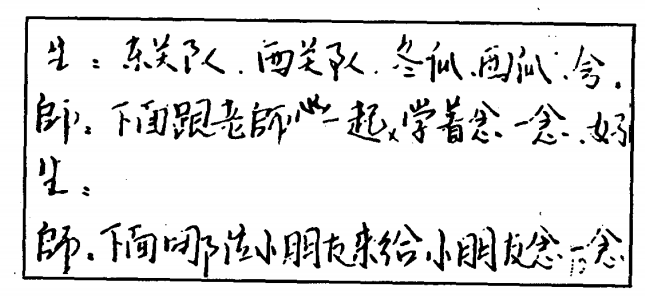 生：东关队、西关队、冬瓜、西瓜、兮。
師：下面跟老師一起学着念一念、好
生：
師：下面哪位小朋友来给小朋友念一念